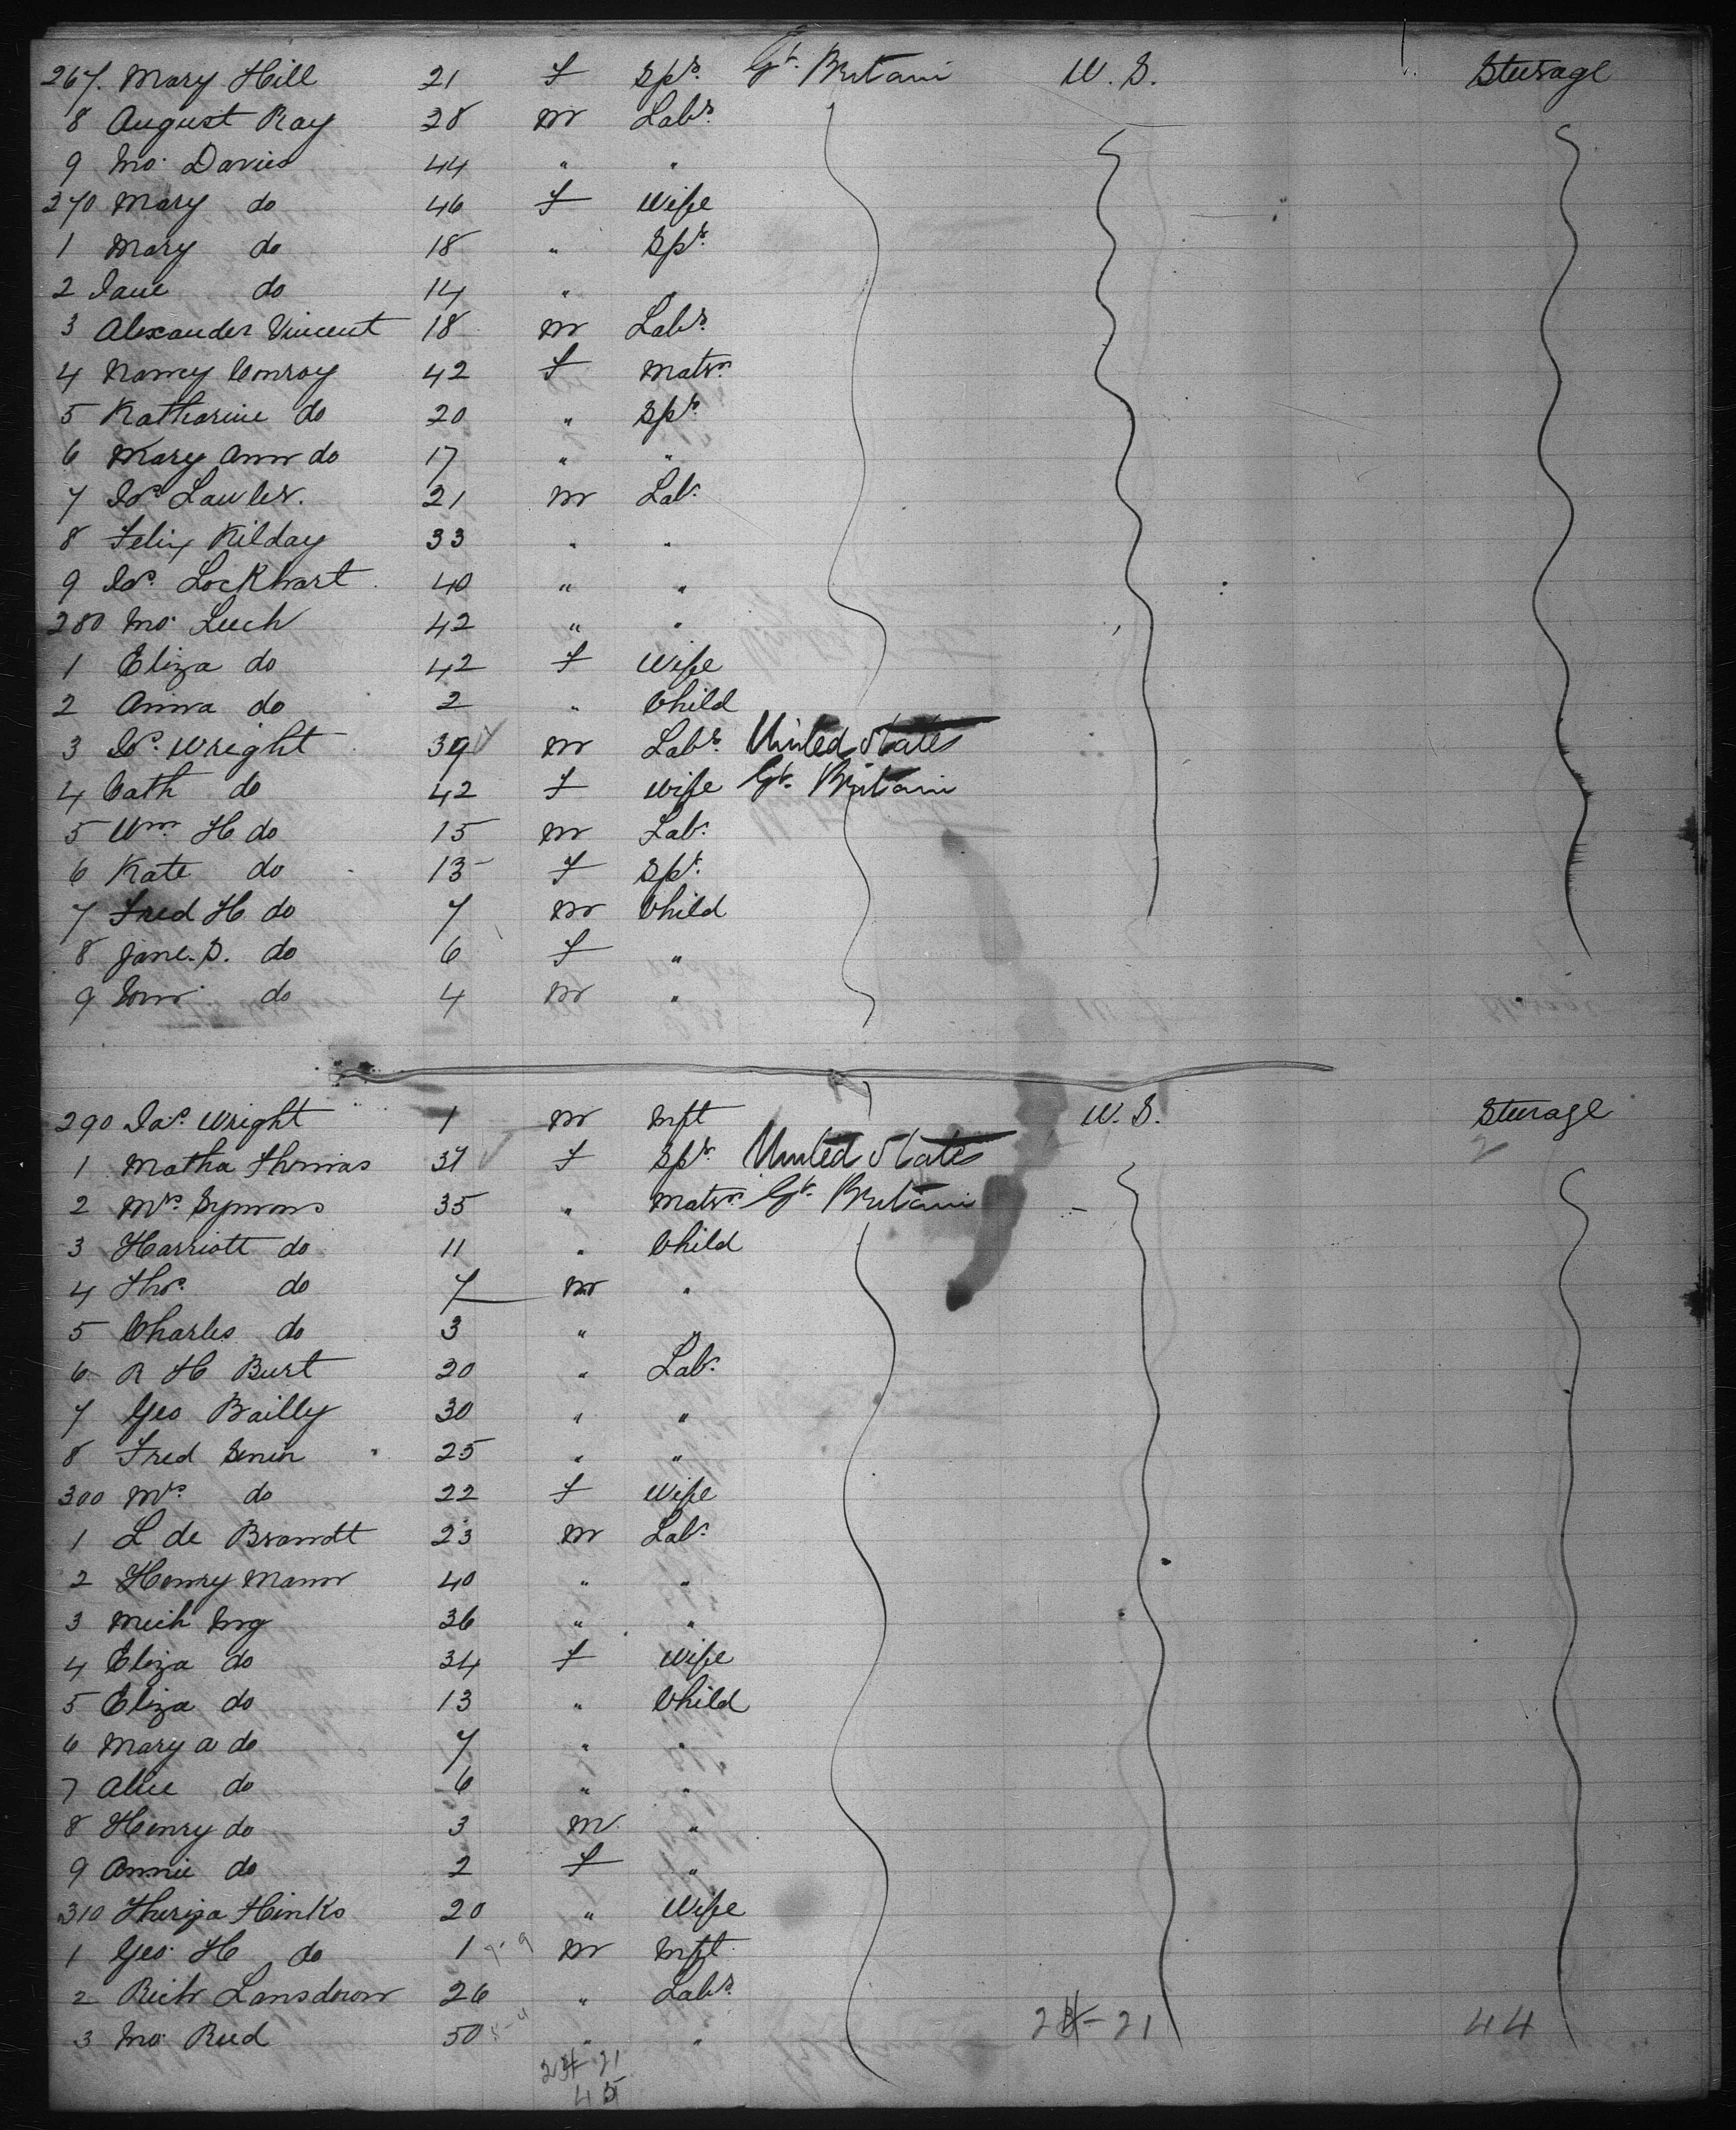 267. Mary Hill 21 F Spr. Gt. Britain U.S. Steerage
8 August Ray 28 M Labr.
9 Wm. Davies 44 " "
270 Mary do 46 F Wife
1 Mary do 18 " Spr.
2 Jane do 14 " "
3 Alexander Vincent 18 M Labr.
4 Nancy Conroy 42 F Matrn
5 Katharine do 20 " Spr.
6 Mary Ann do 17 " "
7 Jos. Lawler. 21 M Lab.
8 Felix Kilday 33 " "
9 Jos. Lockhart 40 " "
280 Wm. Leech 42 " "
1 Eliza do 42 F Wife
2 Anna do 2 " Child
3 Jos. Wright 39 M Labr. United States
4 Cath do 42 F Wife Gt. Britain
5 Wm. H do 15 M Lab.
6 Kate do 13 F Spr.
7 Fred H do 7 M Child
8 Jane. S. do 6 F "
9 do 4 M "
290 Jas. Wright 1 M Inft U.S. Steerage
1 Matha Thomas 37 F Spr. United States
2 Mrs. Symons 35 " Matrn Gt. Britain
3 Harriott do 11 " Child
4 Thos. do 7 M "
5 Charles do 3 " "
6 R H Burt 20 " Lab.
7 Geo Bailly 30 " "
8 Fred 25 " "
300 Mrs. do 22 F Wife
1 L de Brandt 23 M Lab.
2 Henry Mann 40 " "
3 Mich 36 " "
4 Eliza do 34 F Wife
5 Eliza do 13 " Child
6 Mary A do 7 " "
7 Alice do 6 " "
8 Henry do 3 M "
9 Annie do 2 F "
310 Thirza Hinks 20 " Wife
1 Geo. H do 1 M Inft
2 Rich Lansdown 26 " Labr.
3 Wm. Reed 50 " "
21 44
21